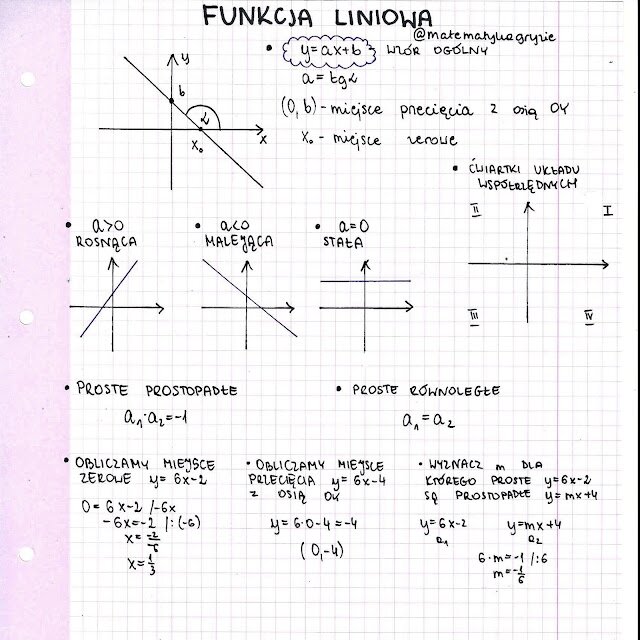 FUNKCJA LINIOWA
@matematykagryzie
• y=ax+b WZÓR OGÓLNY
a=tgα
(0,b)-miejsce precięcia z osią OY
x₀- miejsce zerowe
y
b
α
x₀
x
• ĆWIARTKI UKŁADU
WSPÓŁRZĘDNYCH
II
I
III
IV
• a>0
ROSNĄCA
• a<0
MALEJĄCA
• a=0
STAŁA
• PROSTE PROSTOPADŁE
a₁·a₂=-1
• PROSTE RÓWNOLEGŁE
a₁=a₂
• OBLICZAMY MIEJSCE
ZEROWE y=6x-2
0=6x-2 /-6x
-6x=-2 /:(-6)
x=-2/-6
x=1/3
• OBLICZAMY MIEJSCE
PRZECIĘCIA y=6x-4
Z OSIĄ OY
y=6·0-4=-4
(0,-4)
• WYZNACZ m DLA
KTÓREGO PROSTE y=6x-2
SĄ PROSTOPADŁE y=mx+4
y=6x-2 y=mx+4
a₁ a₂
6·m=-1 /:6
m=-1/6